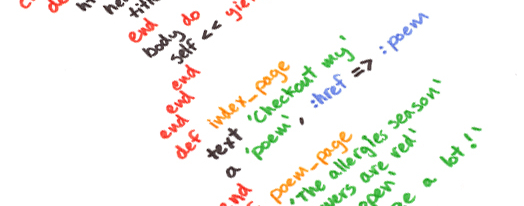 end
body do
self <<
end
end
end
def index_page
text 'Checkout my'
a 'poem', :href => :poem
end
poem_page
'The allergies season'
are red'
a lot!'